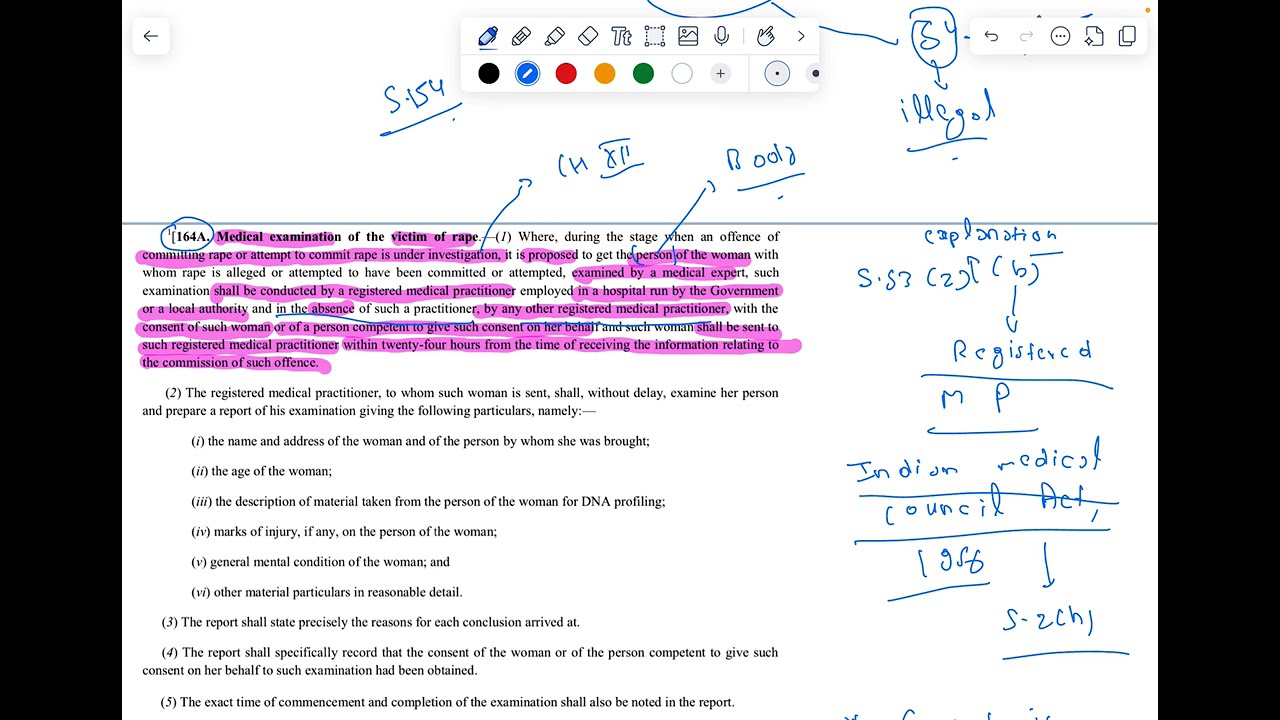 Tt
34
S.154
illegal
CH XII
Body
¹[164A. Medical examination of the victim of rape.—(1) Where, during the stage when an offence of
committing rape or attempt to commit rape is under investigation, it is proposed to get the person of the woman with
whom rape is alleged or attempted to have been committed or attempted, examined by a medical expert, such
examination shall be conducted by a registered medical practitioner employed in a hospital run by the Government
or a local authority and in the absence of such a practitioner, by any other registered medical practitioner, with the
consent of such woman or of a person competent to give such consent on her behalf and such woman shall be sent to
such registered medical practitioner within twenty-four hours from the time of receiving the information relating to
the commission of such offence.
(2) The registered medical practitioner, to whom such woman is sent, shall, without delay, examine her person
and prepare a report of his examination giving the following particulars, namely:—
(i) the name and address of the woman and of the person by whom she was brought;
(ii) the age of the woman;
(iii) the description of material taken from the person of the woman for DNA profiling;
(iv) marks of injury, if any, on the person of the woman;
(v) general mental condition of the woman; and
(vi) other material particulars in reasonable detail.
(3) The report shall state precisely the reasons for each conclusion arrived at.
(4) The report shall specifically record that the consent of the woman or of the person competent to give such
consent on her behalf to such examination had been obtained.
(5) The exact time of commencement and completion of the examination shall also be noted in the report.
explanation
S.53 (2) (b)
Registered
M P
Indian medical
council Act,
1956
S-2(h)